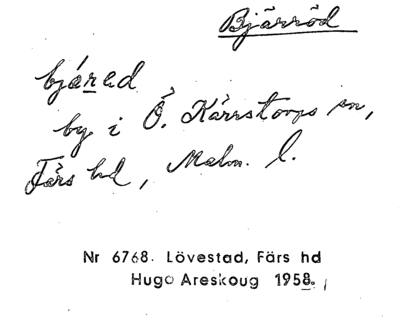 Bjärröd
bjáred
by i Ö. Kärrstorps sn,
Färs hd, Malm. l.
Nr 6768. Lövestad, Färs hd
Hugo Areskoug 1958.